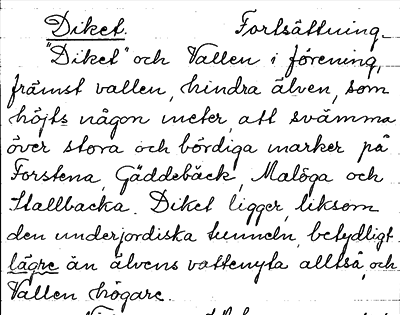 Diket. Fortsättning.
"Diket" och Vallen i förening,
främst vallen, hindra älven, som
höjts någon meter, att svämma
över stora och bördiga marker på
Forstena, Gäddebäck, Malöga och
Hallbacka. Diket ligger, liksom
den underjordiska tunneln, betydligt
lägre än älvens vattenyta alltså, och
Vallen högare.